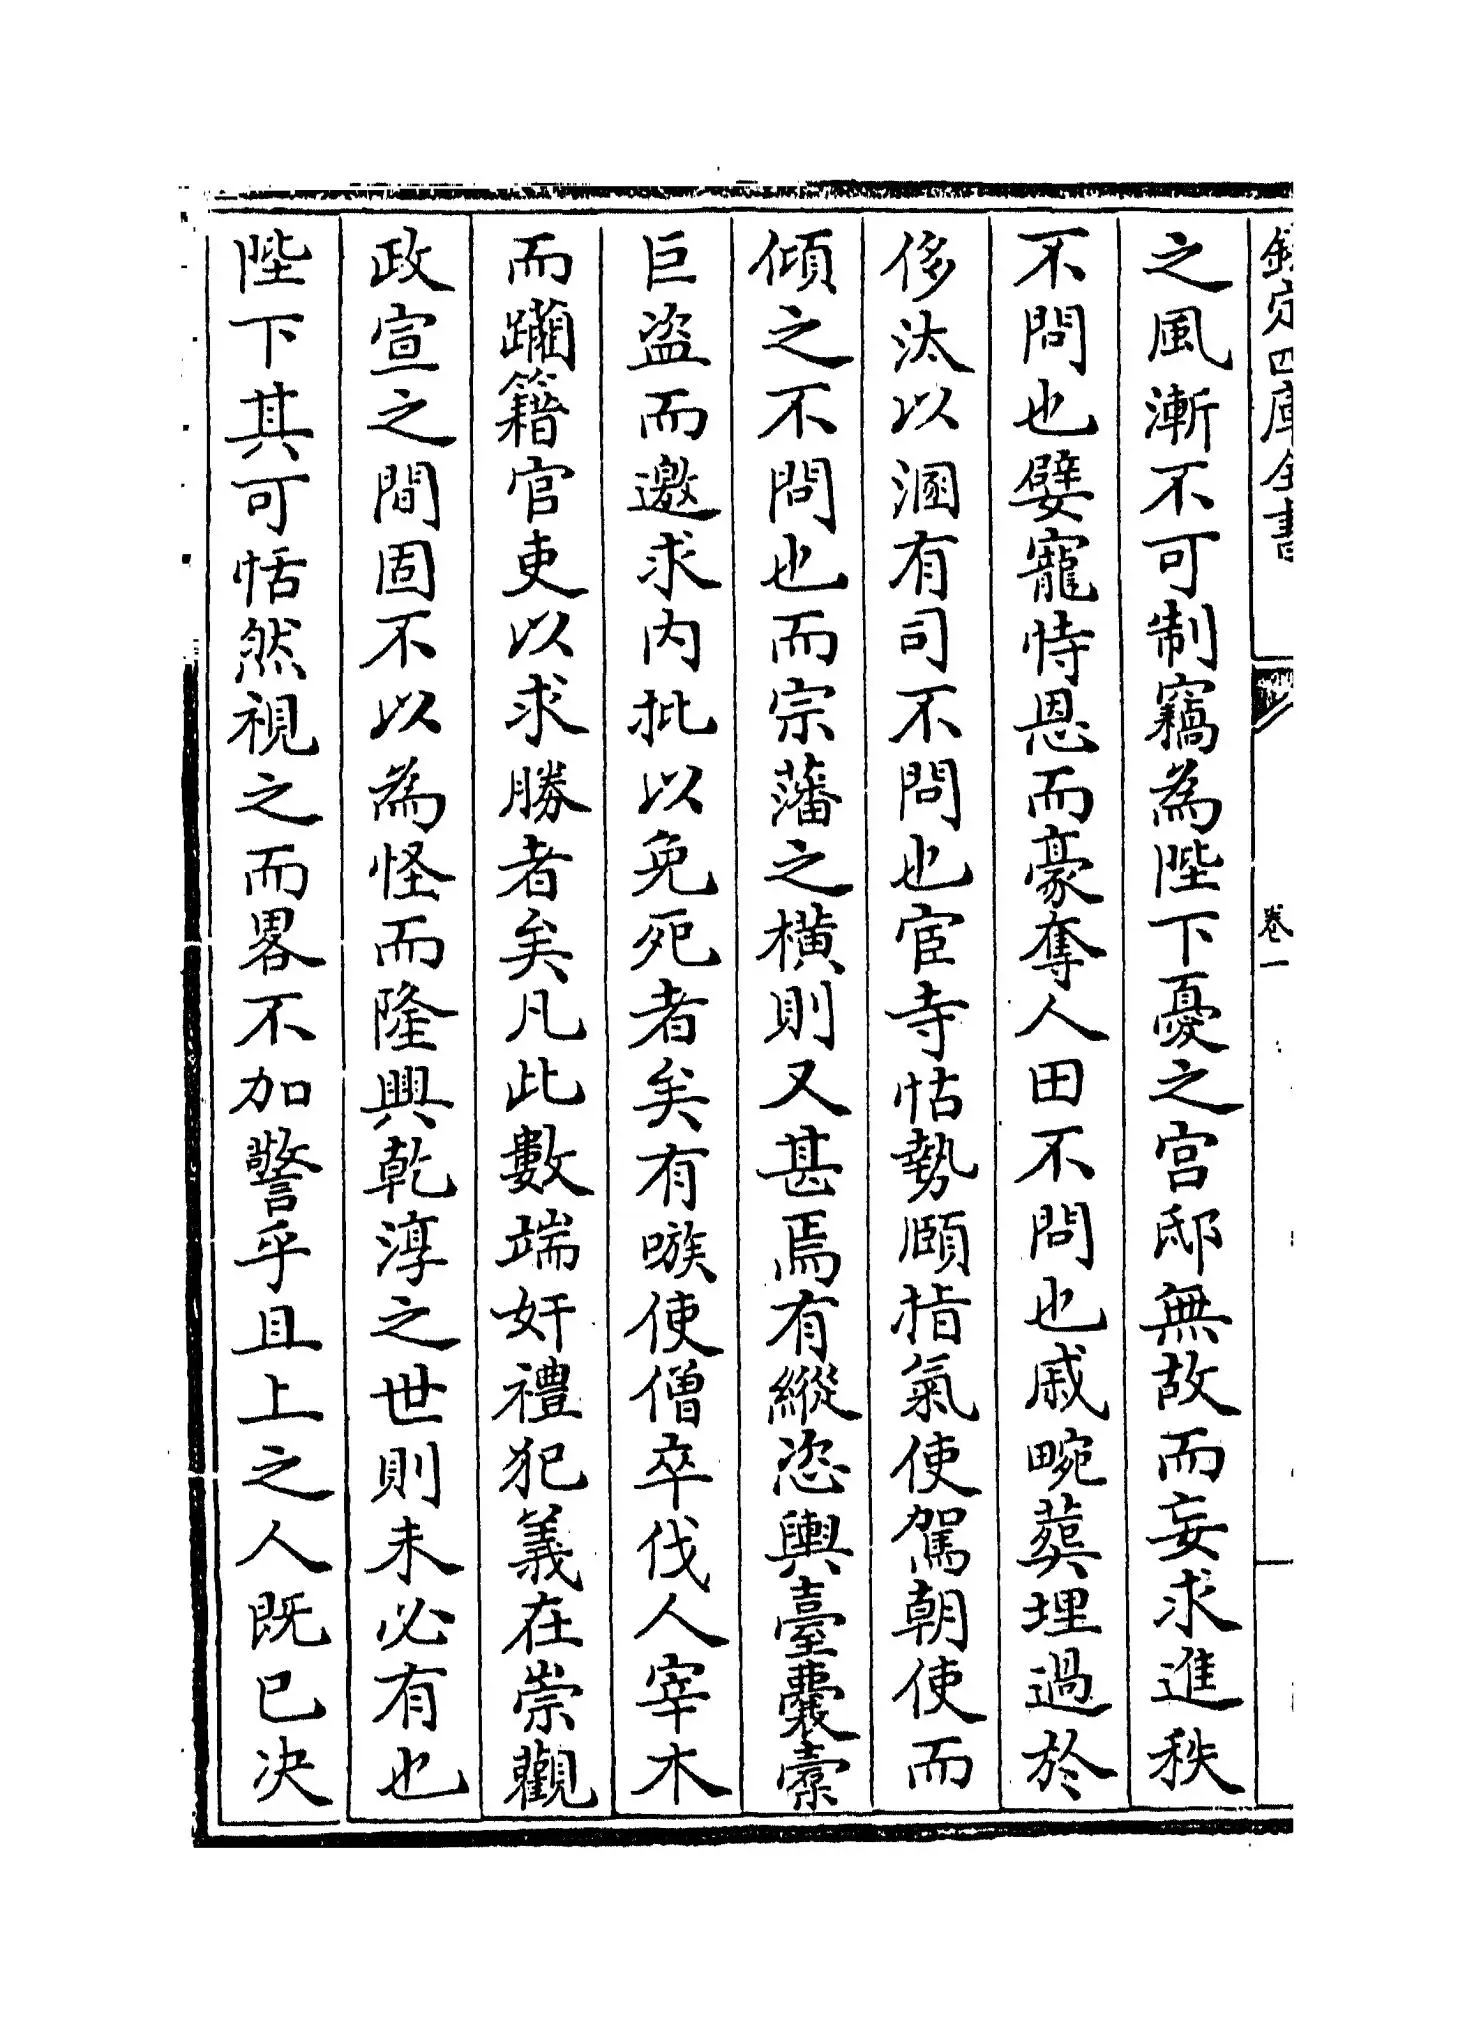 欽定四庫全書
卷一
之風漸不可制竊為陛下憂之宫邸無故而妄求進秩
不問也嬖寵恃恩而豪奪人田不問也戚畹薶埋過於
侈汰以溷有司不問也宦寺怙勢頤指氣使駕朝使而
傾之不問也而宗藩之横則又甚焉有縱恣輿臺囊橐
巨盗而邀求内批以免死者矣有嗾使僧卒伐人宰木
而躪籍官吏以求勝者矣凡此數端奸禮犯義在崇觀
政宣之間固不以為怪而隆興乾淳之世則未必有也
陛下其可恬然視之而畧不加警乎且上之人既已决